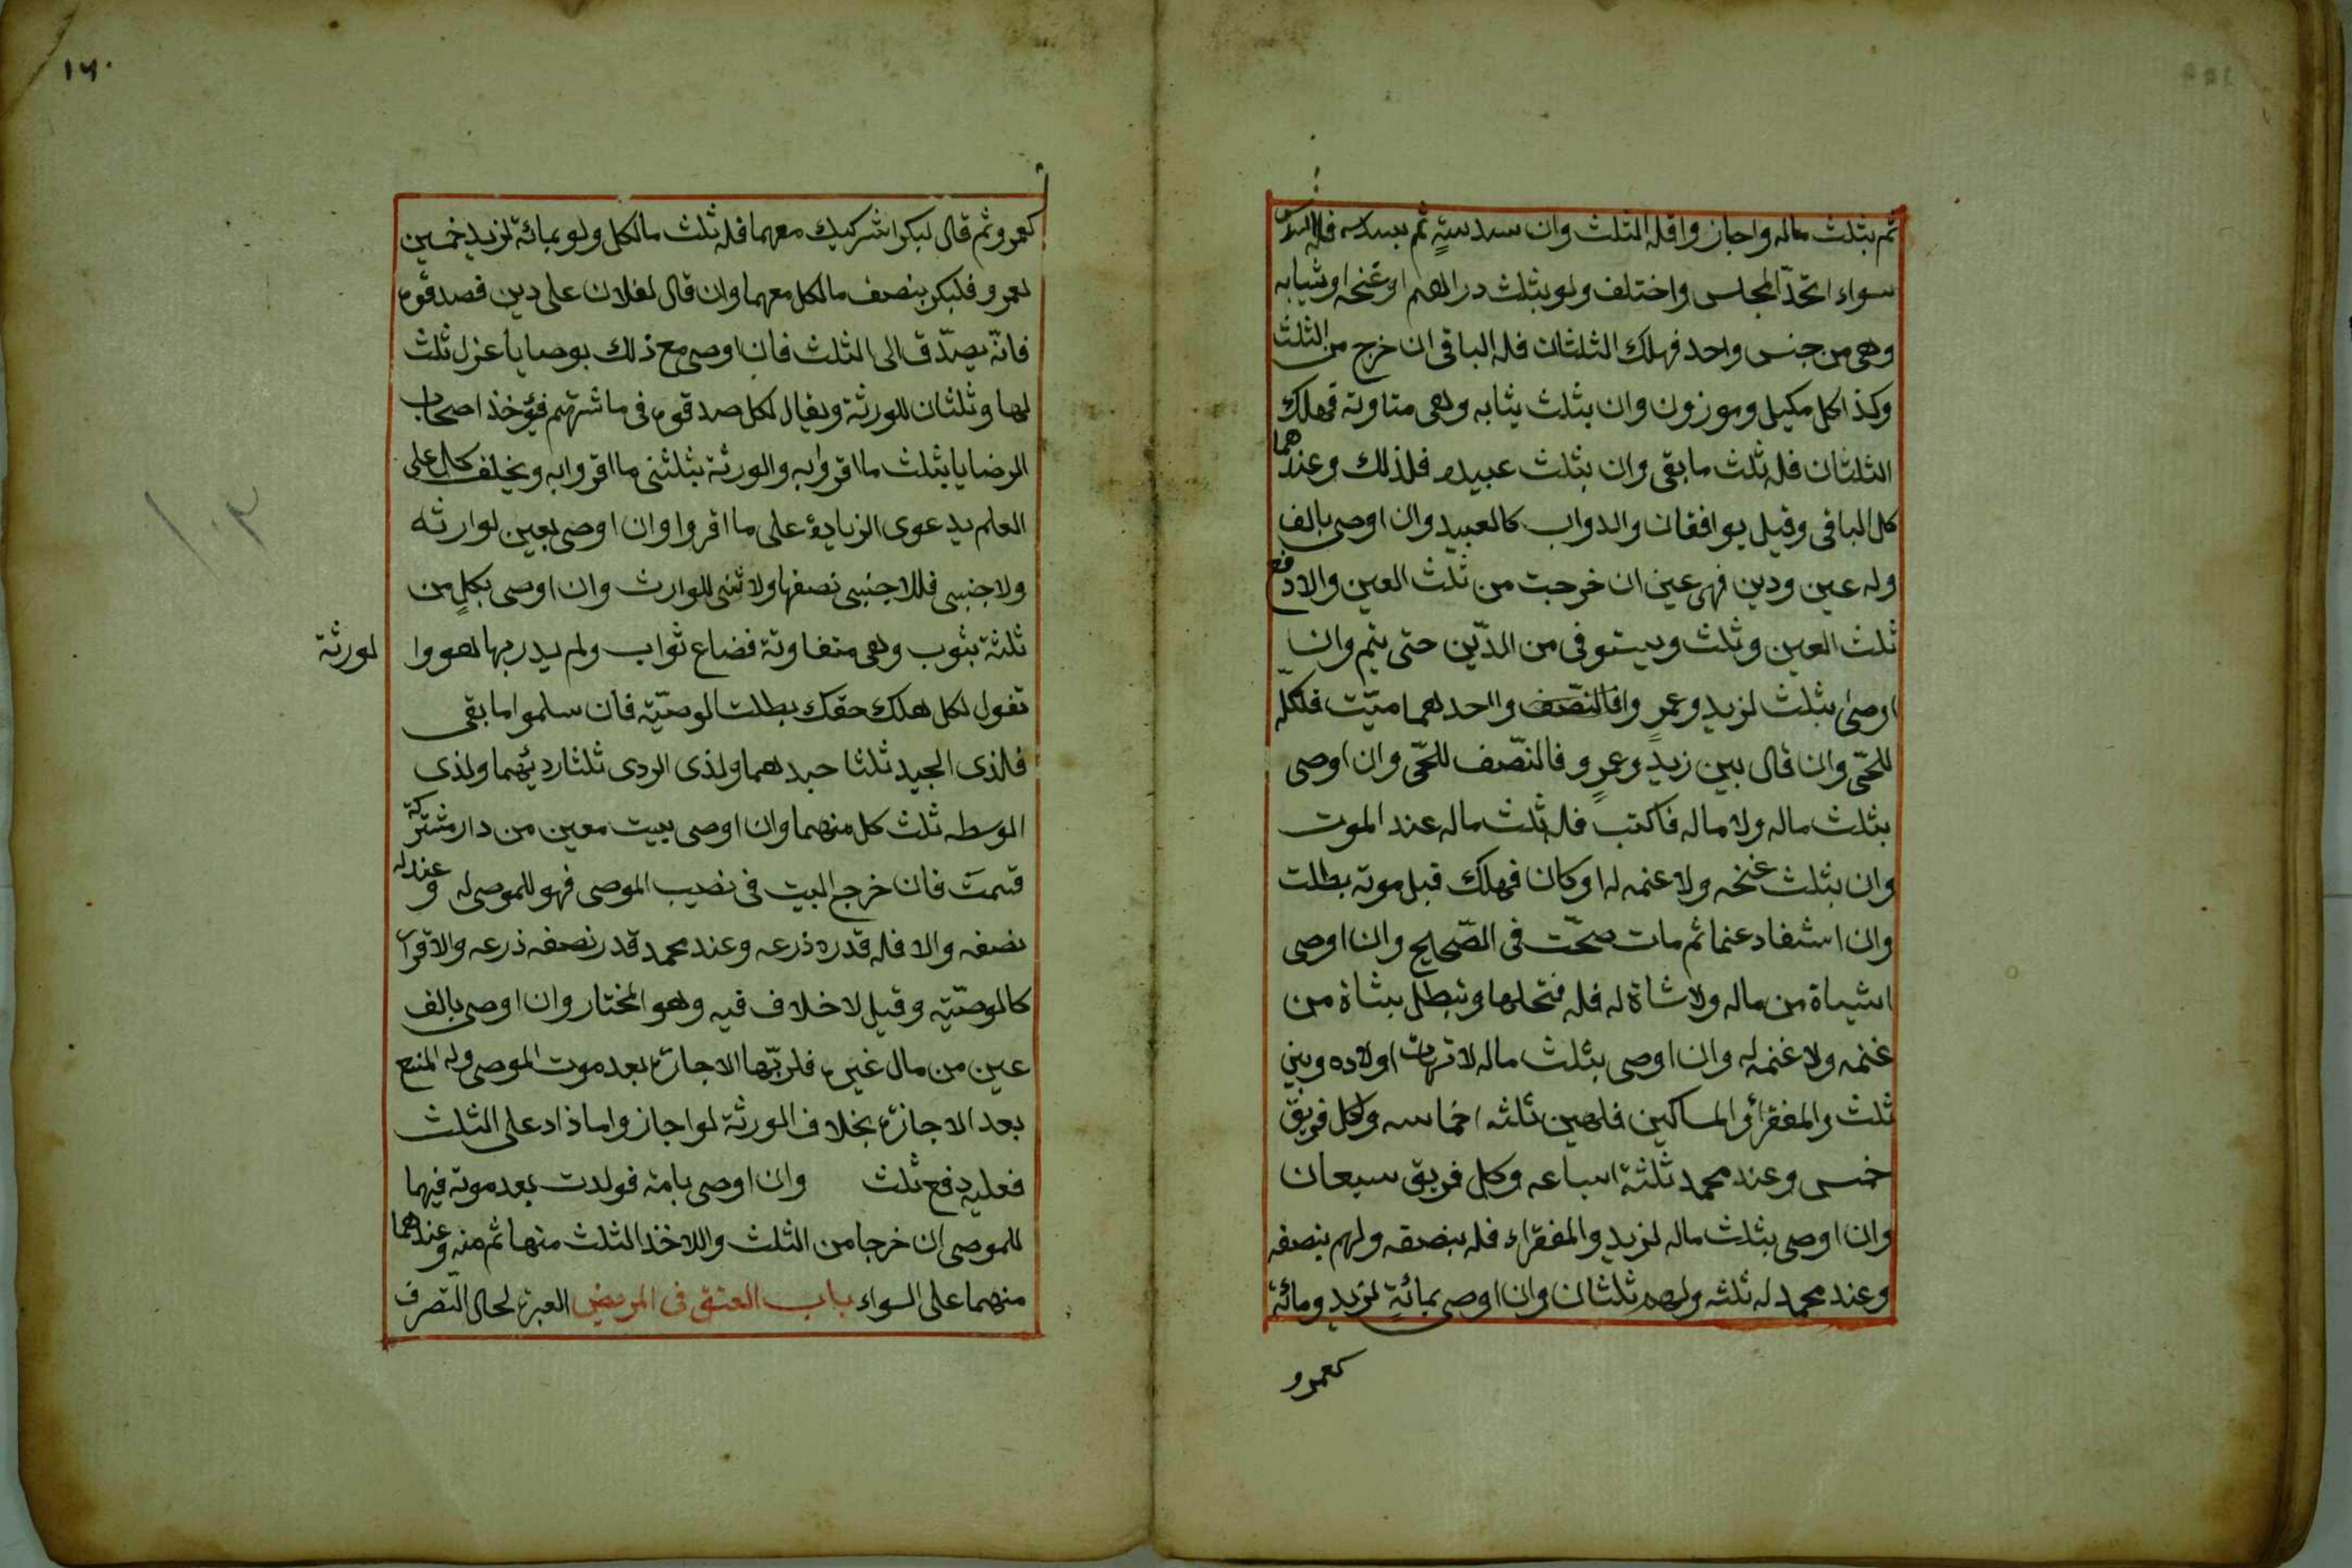 ثم بثلث ماله واجاز واقله الثلث وان سدسيةٍ ثم بسدسه فله السدس
سواء اتحدّ المجلس واختلف ولو بثلث دراهم او غنحه او ثيابه
وهى من جنس واحد فهلك الثلثان فله الباقى ان خرج من الثلث
وكذا كل مكيل وموزون وان بثلث يثابه وهى متاوتة فهلك
الثلثان فله ثلث ما بقى وان بثلث عبيده فلذلك وعندهما
كل الباقى وقيل يوافقان والدواب كالعبيد وان اوصى بالف
وله عين ودين فهى عين ان خرجت من ثلث العين والا دفع
ثلث العين وثلث ويستوفى من الدّين حتى يتم وان
اوصى بثلث لزيد وعمرٍ وافالنصّف واحدهما ميّت فلكلّه
للحّى وان قال بين زيدٍ وعمرٍ و فالنصّف للحّى وان اوصى
بثلث ماله ولا ماله فاكتب فله ثلث ماله عند الموت
وان بثلث غنحه ولا عنمه له او كان فهلك قبل موته بطلت
وان استفاد عنما ثم مات صحّت فى الصّحايح وان اوصى
اشياة من ماله ولا شاة له فله فتحلها وتبطل بشاة من
غنمه ولا غنمه له وان اوصى بثلث ماله لاتهات اولاده وبين
ثلث والمفقرأو المساكين فلهين ثلثه اخماسه ولكل فريق
خمس وعند محمد ثلثة اسباعه وكل فريق سبعان
وان اوصى بثلث ماله لزيد والمفقراء فله بنصفه ولهم بنصفه
وعند محمد له ثلثه ولهم ثلثان وان اوصى بمائةٍ لزيد ومائة
كعمرو
١٦٠
كعمرو ثم قال لبكر اشركيك معهما فله ثلث ما لكل ولو بمائة لزيد خمسين
لعمرو فلبكر بنصف ما لكل معهما وان قال لفلان على دين فصدقوه
فانّه يصدّق الى الثلث فان اوصى مع ذلك بوصايا عزل ثلث
لها وثلثان للورثة ويقال لكل صدقوه فى ما شرتهم فيؤخذ اصحاب
الرضايا بثلث ما اقروا به والورثة بثلثى ما اقروا به ويخلف كل على
العلم يدعوى الزيادة على ما اقروا وان اوصى بعين لوارثه
ولا جنبى فللاجنبى نصفها ولا شى للوارث وان اوصى بكلٍ من
ثلثة بثوب وهى متفاوتة فضاع ثواب ولم يدر بهما هو وا لورثة
تقول لكل هلك حقك بطلت الوصيّة فان سلموا ما بقى
فلذى الجيد ثلثا حيدهما ولذى الردى ثلثا رديئهما ولذى
الوسطه ثلث كل منهما وان اوصى ببيت معين من دار مشتركة
قسمت فان خرج البيت فى نصيب الموصى فهو للموصى له وعندله
نصفه والا فله قدره ذرعه وعند محمد قدر نصفه ذرعه والاقرآ
كالوصيّة وقيل لا خلاف فيه وهو المختار وان اوصى بالف
عين من مال غيره فلربّها الاجازة بعد موت الموصى وله المنع
بعد الاجازة بخلاف الورثة لو اجاز واما ذاد على الثلث
فعليه دفع ثلث وان اوصى بامة فولدت بعد موته فيهما
للموصى ان خرجا من الثلث واللاخذ الثلث منها ثم منه وعندهما
منهما على السواء باب العتق فى المريض العبرة لحال التّصرف